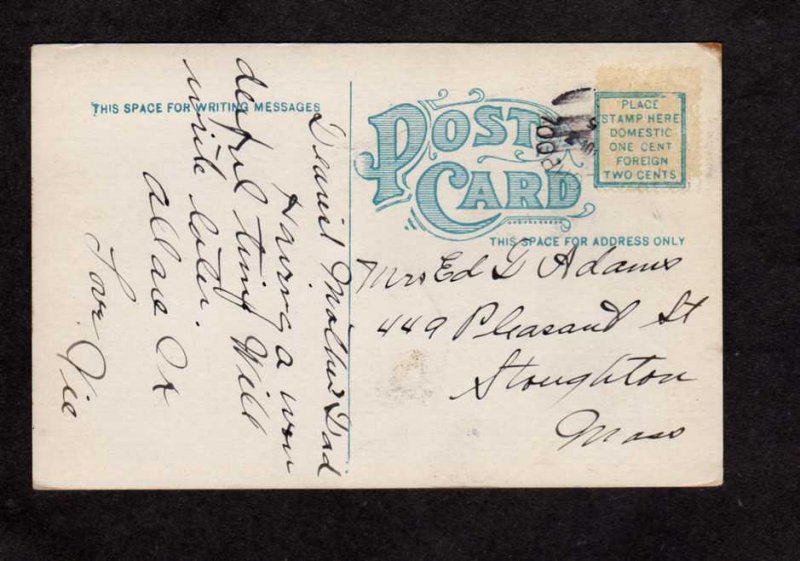 THIS SPACE FOR WRITING MESSAGES
Dearest Mother Dad
Having a won
derful time Will
write later.
Love Vic
POST
CARD
THIS SPACE FOR ADDRESS ONLY
PLACE
STAMP HERE
DOMESTIC
ONE CENT
FOREIGN
TWO CENTS
Mrs Ed G Adams
449 Pleasant St
Stoughton
Mass